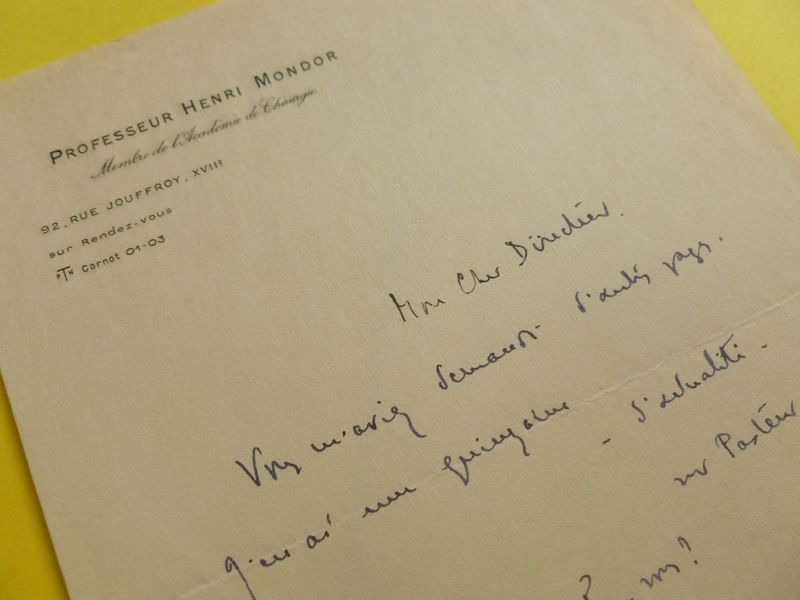 PROFESSEUR HENRI MONDOR
Membre de l'Académie de Chirurgie
92, RUE JOUFFROY, XVIIe
sur Rendez-vous
PTH Carnot 01-03
Mon Cher Directeur.
Vous m'aviez demandé d'autres pages.
J'en ai une quinzaine - d'actualité -
sur Pasteur
vous?